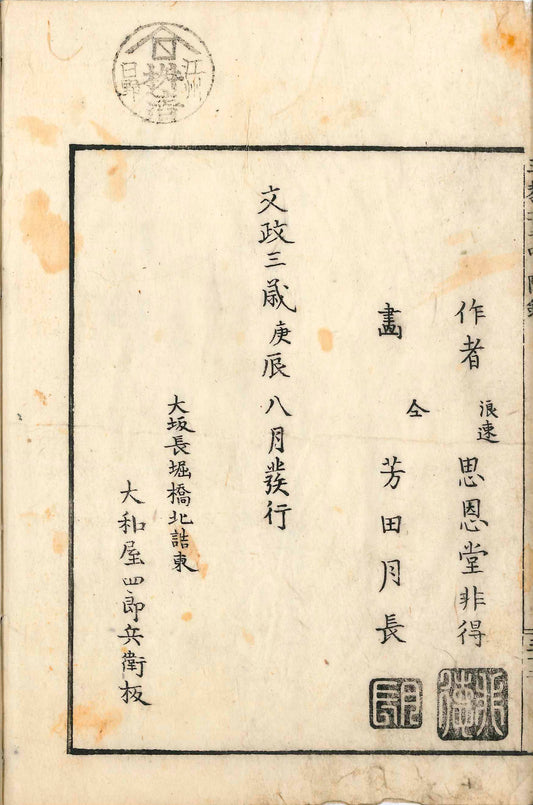 作者 浪速 思恩堂非得
畫 仝 芳田月長
文政三歳庚辰八月發行
大坂長堀橋北詰東
大和屋四郎兵衛板
月長
江州
日野